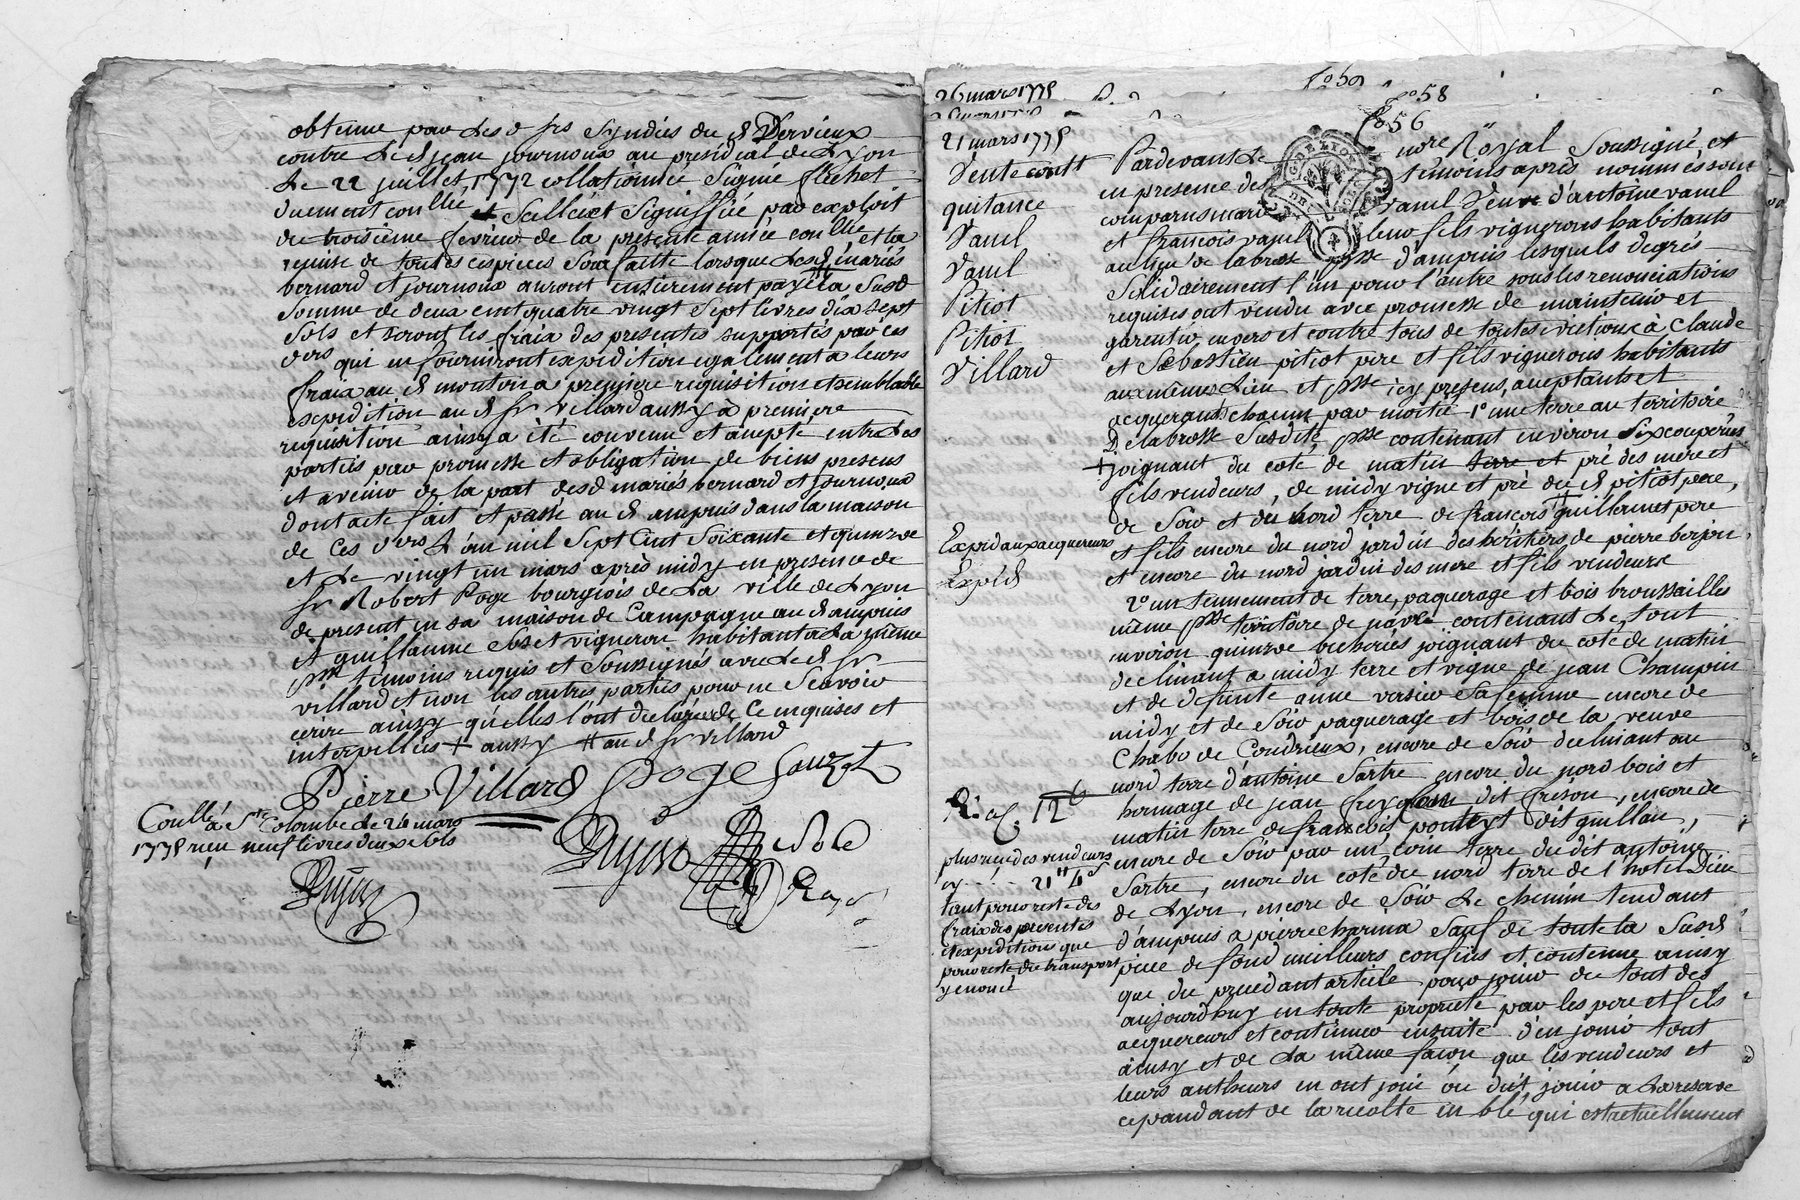 obtenue par Les d srs Syndics du d Dervieux
contre Le d jean journoux au presidial de Lyon
Le 22 juillet 1772 collationnée Signée fléchet
duement conllée et Sellée et Signiffiée par exploit
du troisième fevrier de la presente année conllée et la
remise de toutes ces pieces Sera faitte lorsque Les d mariés
bernard et journoux auront entierement payé la Susd
Somme de deux cent quatre vingt Sept livres dix sept
Sols et seront les fraix des presentes supportés par ces
ders qui en fourniront expedition egalement a leurs
fraix au d monton a premiere requisition et semblable
expedition au d sr Villard aussy à premiere
requisition ainsy a été convenu et accepté entre Les
parties par promesse et obligation de biens presens
et avenir de la part desd mariés bernard et journoux
dont acte fait et passé au d ampuis dans la maison
de ces ders L'an mil Sept Cent Soixante et quinze
et Le vingt un mars après midy en presence de
sr Robert Poge bourgeois de La ville de Lyon
de present en sa maison de Campagne au d ampuis
et guillaume vigneron habitant a La même
psse temoins requis et Soussignés avec Le d sr
villard et non les autres parties pour ne Scavoir
ecrire ainsy qu'elles l'ont declaré de ce enquises et
interpellées + aussy # au d sr villard
Pierre Villard poge
Conllé à Ste Colombe Le 24 mars
1775 reçu neuf livres deux sols
26 mars 1775
fo 58
fo 56
21 mars 1775
Vente contt
quitance
Vanel
Vanel
Pitiot
Pitiot
Villard
Pardevant Le nore Royal Soussigné, et
en presence des temoins après nommés sont
comparus marie vanel Veuve d'antoine vanel
et francois vanel leur fils vignerons habitants
au lieu de labrosse psse d'ampuis lesquels degrés
Solidairement l'un pour l'autre sous les renonciations
requises ont vendu avec promesse de maintenir et
garentir envers et contre tous de toutes evictions à Claude
et Sebastien pitiot pere et fils vignerons habitants
aux mêmes Lieu et psse icy presens, acceptants et
acquerants chacun par moitié 1o une terre au territoire
De labrosse Susdite psse contenant environ Six couperies
+ joignant du coté de matin terre et pré des mere et
fils vendeurs, de midy vigne et pré du d pitiot pere,
de Soir et du nord terre de francois guillermet pere
et fils encore du nord jardin des heritiers de pierre berjon,
et encore du nord jardin des mere et fils vendeurs
Exped aux acquereurs
Expéd
2o un tennement de terre, paquerage et bois broussailles
même psse territoire de contenant Le tout
environ quinze bicherées joignant du coté de matin
declinant a midy terre et vigne de jean Champin
et de defunte anne Sa femme encore de
midy et de Soir paquerage et bois de la veuve
Chabo de Condrieux, encore de Soir declinant au
nord terre d'antoine Sartre encore du nord bois et
hermage de jean dit frison, encore de
matin terre de francois dit guillau,
encore de Soir par un coin terre du dit antoine
Sartre, encore du coté du nord terre de l'hotel Dieu
de Lyon, encore de Soir Le chemin tendant
d'ampuis a pierre charina Sauf de toute la Susd
piece de fond meilleurs confins et contenue ainsy
que du precedant article pour jouir du tout des
aujourdhuy en toute proprieté par les pere et fils
acquereurs et continuer ensuite d'en jouir tout
ainsy et de La même façon que les vendeurs et
leurs autheurs en ont joui ou dut jouir a La reserve
cependant de la recolte en blé, qui est actuellement
plus reçu des vendeurs
cy 21# 4s
tant pour reste des
fraix des presentes
et expeditions que
pour reste du transport
y enoncé